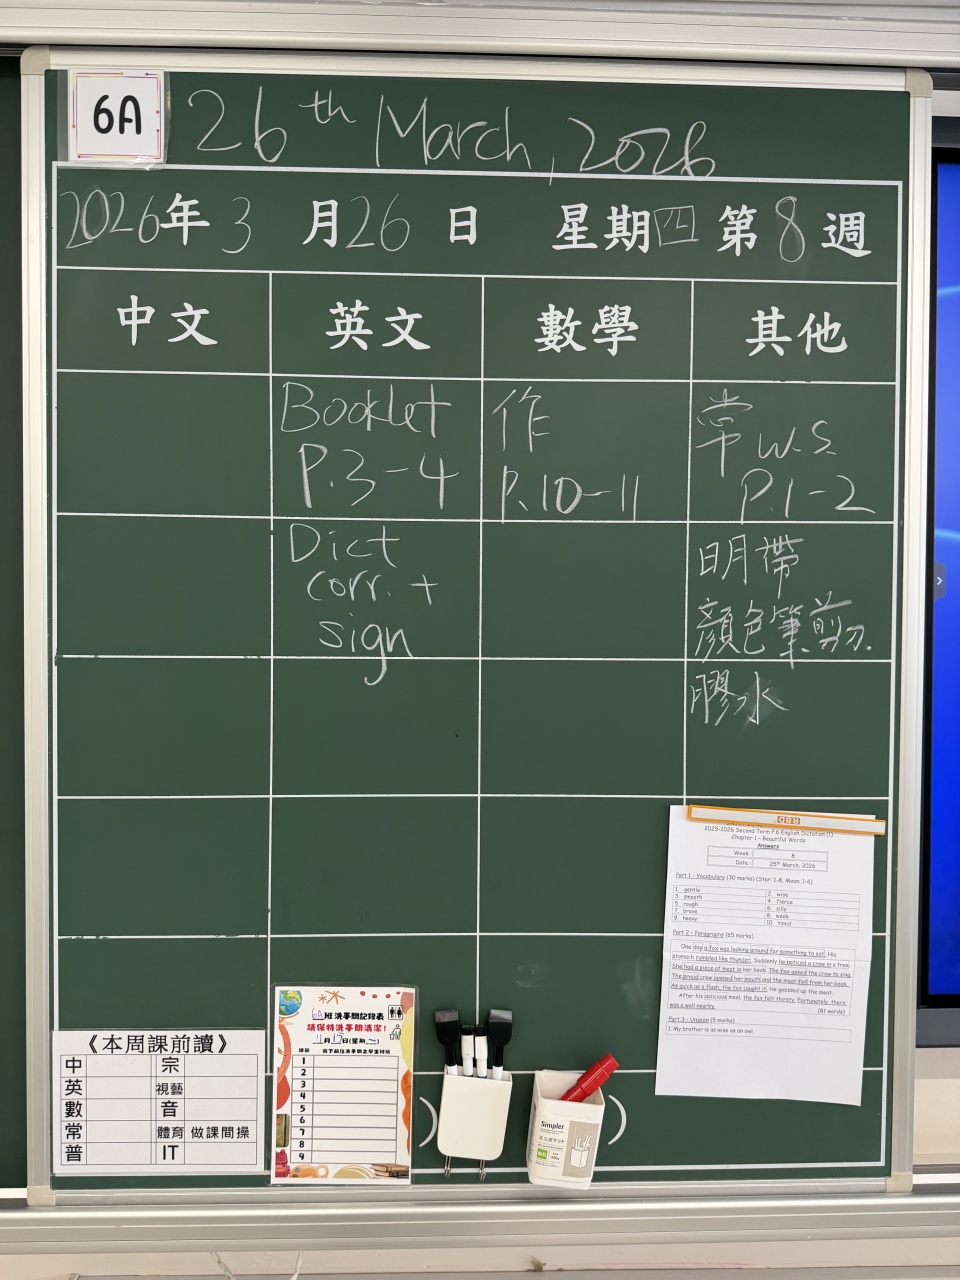 6A
26th March, 2026
2026年3月26日 星期四 第8週
中文 英文 數學 其他
Booklet
P.3-4
作
P.10-11
常 W.S.
P.1-2
Dict
corr. +
sign
明帶
顏色筆、剪刀.
膠水
2025-2026 Second Term P.6 English Dictation (1)
Chapter 1 - Beautiful Words
Answers
Week : 8
Date : 25th March, 2026
Part 1 - Vocabulary (30 marks) (Star: 1-8, Moon: 1-6)
1. gentle 2. wise
3. smooth 4. fierce
5. rough 6. silly
7. brave 8. weak
9. heavy 10. timid
Part 2 - Paragraphs (65 marks)
One day a fox was looking around for something to eat. His
stomach rumbled like thunder. Suddenly he noticed a crow in a tree.
She had a piece of meat in her beak. The fox asked the crow to sing.
The proud crow opened her mouth and the meat fell from her beak.
As quick as a flash, the fox caught it. He gobbled up the meat.
After his delicious meal, the fox felt thirsty. Fortunately, there
was a well nearby.
(81 words)
Part 3 - Unseen (5 marks)
1. My brother is as wise as an owl.
《本周課前讀》
中 宗
英 視藝
數 音
常 體育 做課間操
普 IT
6A班洗手間記錄表
請保持洗手間清潔!
1
2
3
4
5
6
7
8
9
Simpler
ミニポケット